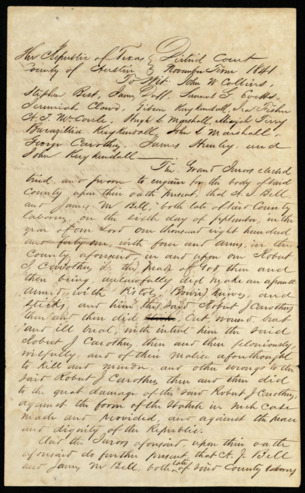 The Republic of Texas } District Court
County of Austin } November Term 1841
To Wit: John W Collins,
Stephen Best, James Bell, Samuel G.
Jeremiah Cloud, Gibson Kuykendall,
Hugh L Marshall,
Barzillia Kuykendall, John L Marshall,
George Carothers, James and
John Kuykendall —
The Grand Jurors elected
tried, and sworn to enquire for the body of said
County upon their oath present that A. J. Bell
and James M Bell, both late of said County
laborers, on the sixth day of September, in the
year of our Lord one thousand eight hundred
and forty one, with force and arms, in the
County aforesaid, in and upon one Robert
J Carothers in the peace of God then and
there being, unlawfully did make an assault
and with Pistols, Bowie Knives, and
Sticks, and him the said Robert J Carothers
then and there did Cut, wound, beat
and ill treat, with intent him the said
Robert J. Carothers then and there feloniously
wilfully and of their malice aforethought
to kill and murder, and other wrongs to the
said Robert J Carothers then and there did
to the great damage of the said Robert J Carothers,
against the form of the Statute in such case
made and provided, and against the peace
and dignity of the Republic.
And the Jurors aforesaid, upon their oath
aforesaid do further present, that A. J. Bell
and James M Bell, both late of said County laborers